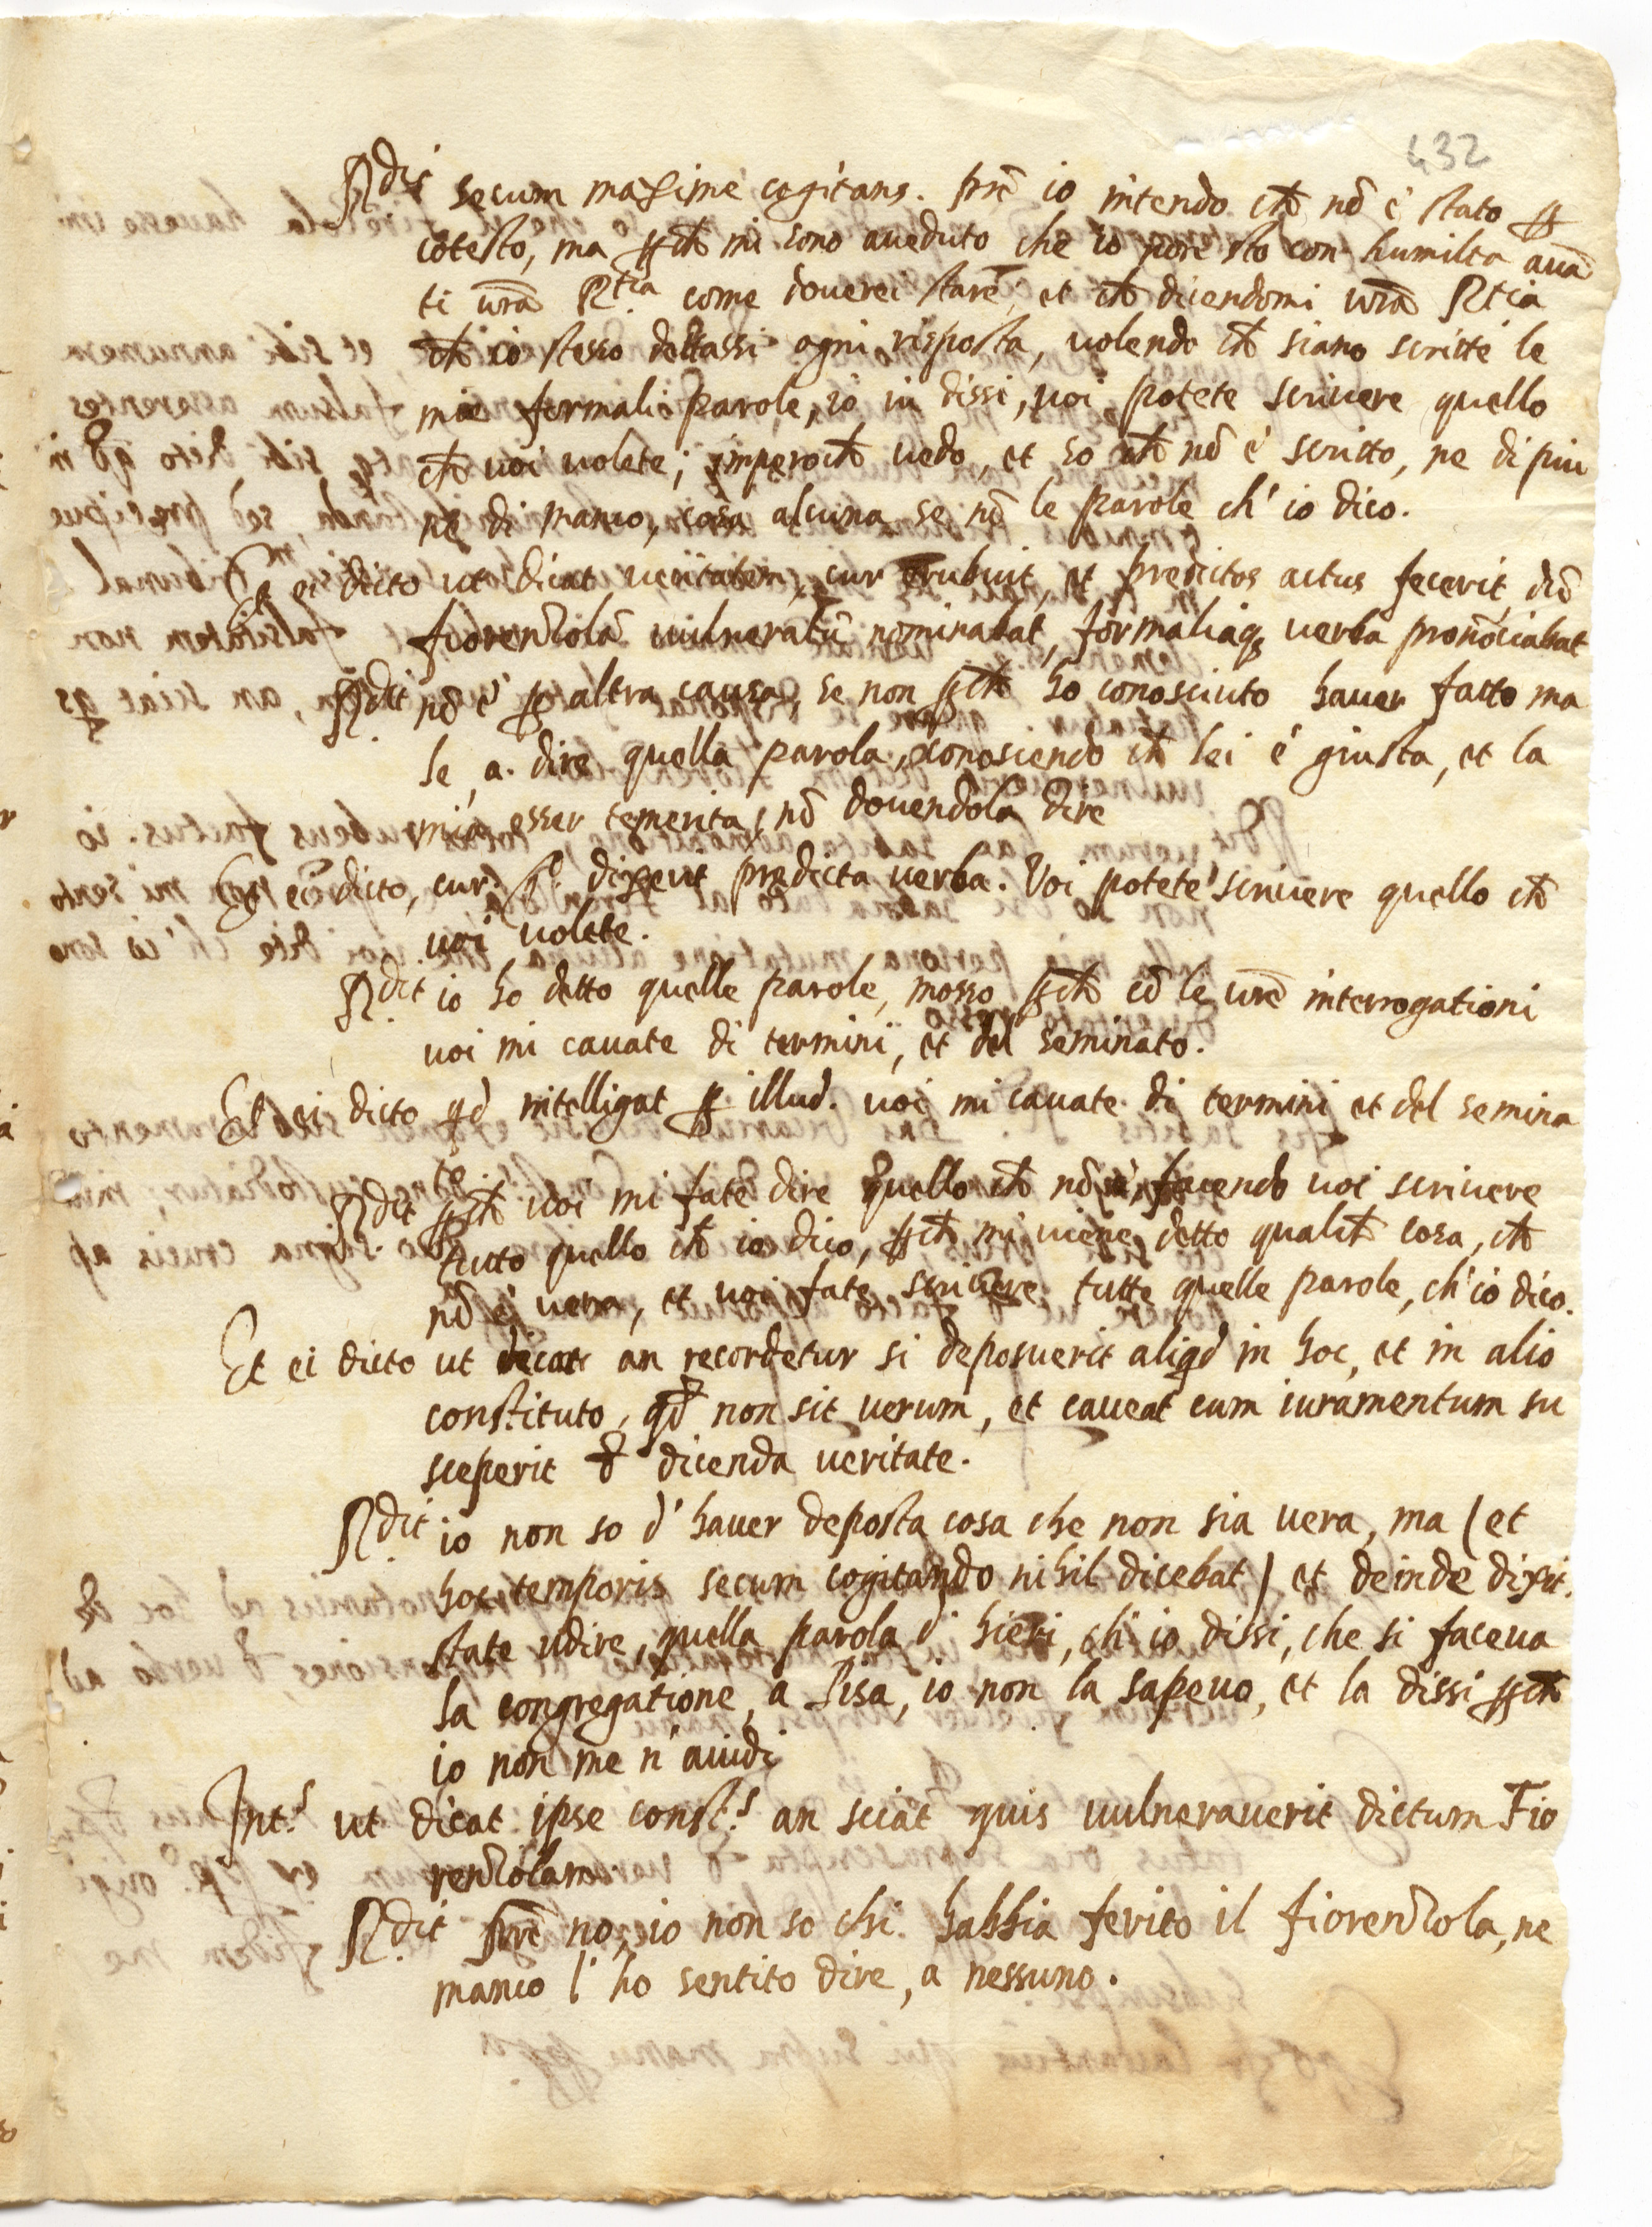 432
R.dit secum maxime cogitans. prē io intendo ch̄ nō è stato ꝑ
cotesto, ma ꝑch̄ mi sono aueduto che io porē sto con humilta auā
ti urā R.tia come douerei stare, et ch̄ dicendomi urā R.tia
ch̄ io stesso dettassi ogni risposta, uolendo ch̄ siano scritte le
mie formali parole, io ui dissi, uoi potete scriuere quello
ch̄ uoi uolete; imperoch̄ uedo, et so ch̄ nō è scritto, ne di piu
ne di manco, cosa alcuna se nō le parole ch' io dico.
Et ei dicto ut dicat ueritatem, cur erubuit, et predictos actus fecerit, dū
fiorenzolā uulneratū nominabat, formaliaqꝫ uerba pronōciabat
R.dit nō è ꝑ altra causa, se non ꝑch̄ ho conosciuto hauer fatto ma
le, a dire quella parola, conosciendo ch̄ lei è giusta, et la
mia esser temerita, nō douendola dire
Et ei dicto, cur dixerit predicta uerba. Voi potete scriuere quello ch̄
uoi uolete.
R.dit io ho detto quelle parole, mosso ꝑch̄ cō le urē interrogationi
uoi mi cauate di termini, et del seminato.
Et ei dicto qd intelligat ꝑ illud. uoi mi cauate di termini et del semina
to.
R.dit ꝑch̄ uoi mi fate dire quello ch̄ nō è, facendo uoi scriuere
tutto quello ch̄ io dico, ꝑch̄ mi uiene detto qualch̄ cosa, ch̄
nō è uera, et uoi fate scriuere tutte quelle parole, ch' io dico.
Et ei dicto ut dicat an recordetur si deposuerit aliqd in hoc, et in alio
constituto, qd non sit uerum, et caueat cum iuramentum su
sceperit d dicenda ueritate.
R.dit io non so d' hauer deposta cosa che non sia uera, ma (et
hoc temporis secum cogitando nihil dicebat) et deinde dixit.
state udire, quella parola d' hieri, ch' io dissi, che si faceua
la congregatione, a Pisa, io non la sapeuo, et la dissi ꝑch̄
io non me n' auidi
Int.s ut dicat ipse const.s an sciat quis uulnerauerit dictum Fio
renzolam.
R.dit prē no, io non so chi habbia ferito il fiorenzola, ne
manco l' ho sentito dire, a nessuno.